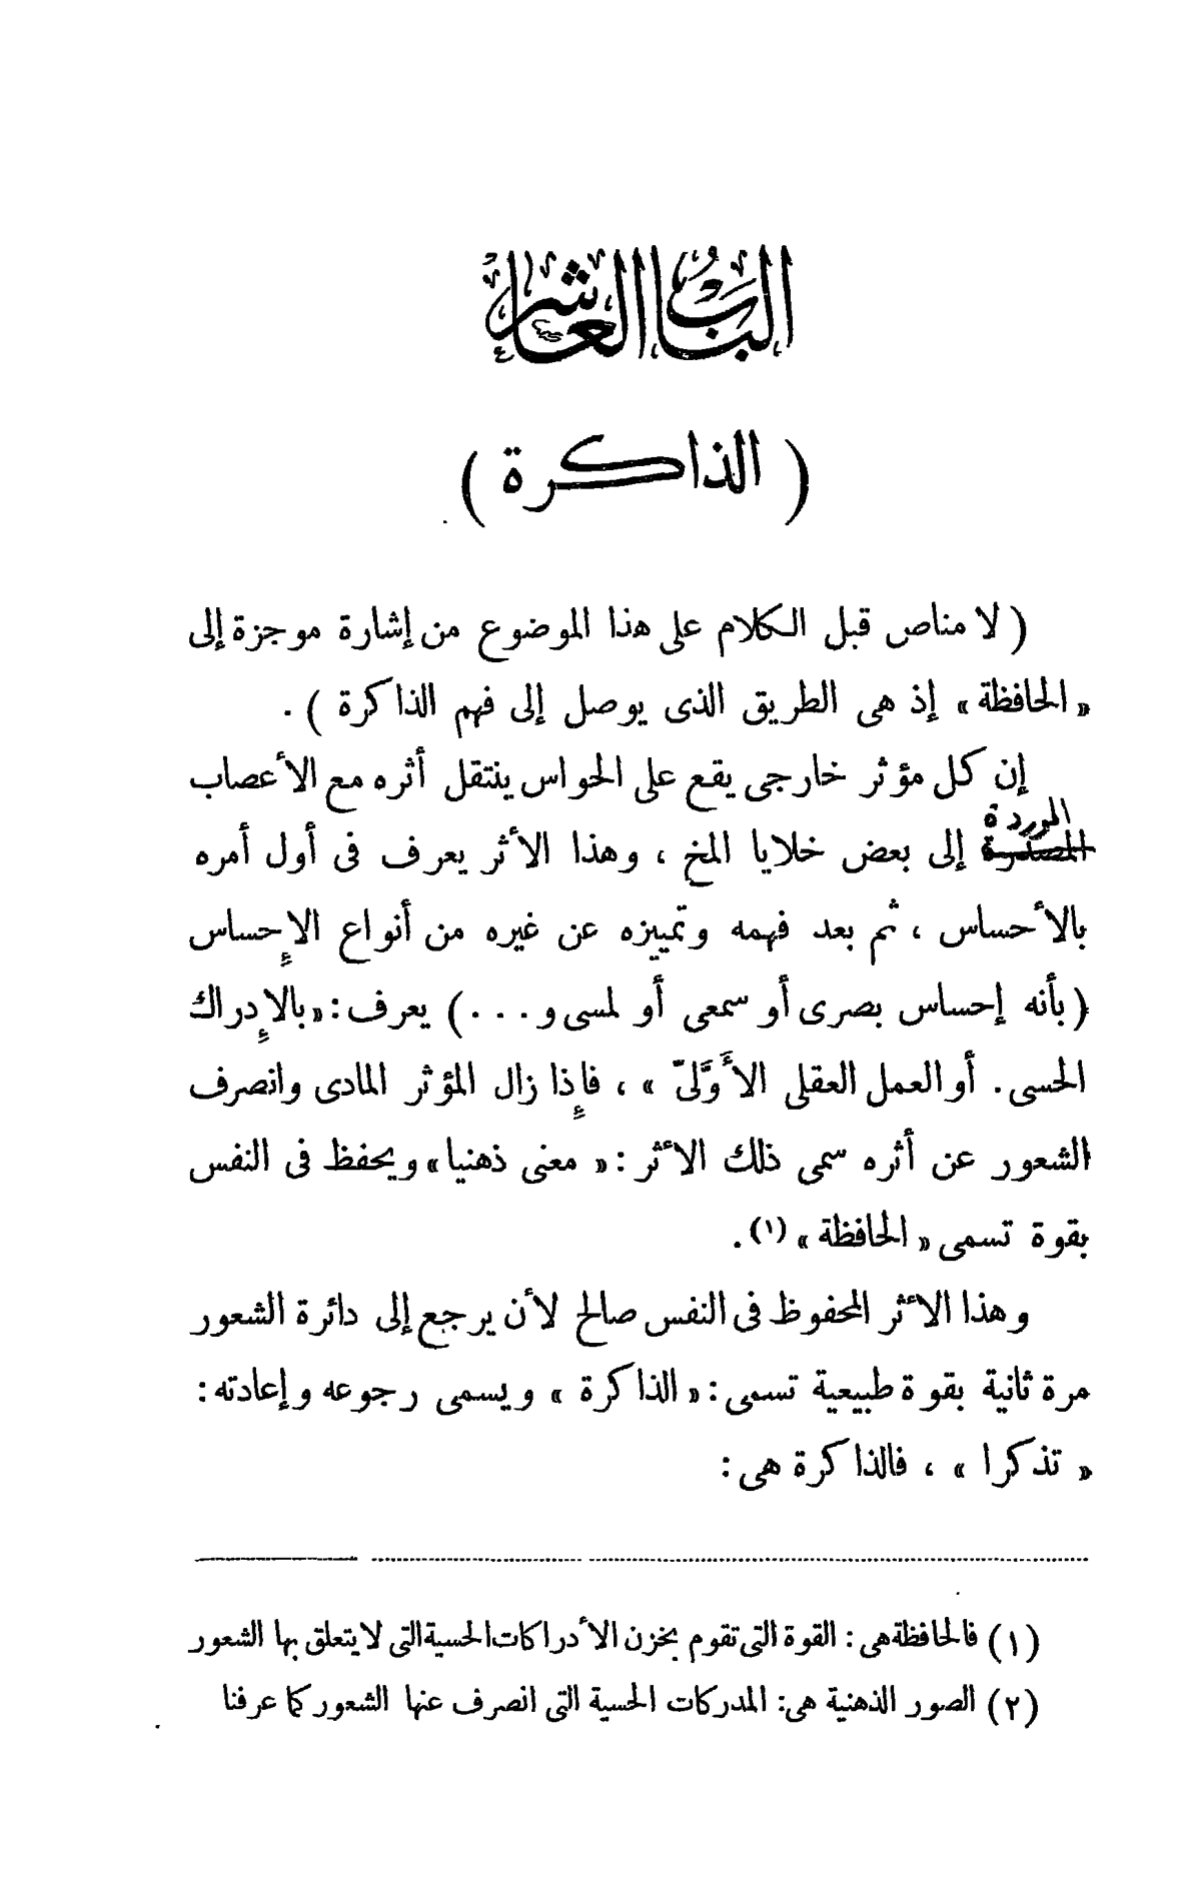 الباب العاشر
( الذاكرة )
( لا مناص قبل الكلام على هذا الموضوع من إشارة موجزة إلى
« الحافظة » إذ هى الطريق الذى يوصل إلى فهم الذاكرة ) .
إن كل مؤثر خارجى يقع على الحواس ينتقل أثره مع الأعصاب
الموردة
المصدرة إلى بعض خلايا المخ ، وهذا الأثر يعرف فى أول أمره
بالأحساس ، ثم بعد فهمه وتمييزه عن غيره من أنواع الإحساس
( بأنه إحساس بصرى أو سمعى أو لمسى و . . . ) يعرف : « بالإدراك
الحسى . أو العمل العقلى الأَوَّلىّ » ، فإذا زال المؤثر المادى وانصرف
الشعور عن أثره سمى ذلك الأثر : « معنى ذهنيا » ويحفظ فى النفس
بقوة تسمى « الحافظة » (١) .
وهذا الأثر المحفوظ فى النفس صالح لأن يرجع إلى دائرة الشعور
مرة ثانية بقوة طبيعية تسمى : « الذاكرة » ويسمى رجوعه وإعادته :
« تذكرا » ، فالذاكرة هى :
(١) فالحافظة هى : القوة التى تقوم بخزن الأدراكات الحسية التى لا يتعلق بها الشعور
(٢) الصور الذهنية هى : المدركات الحسية التى انصرف عنها الشعور كما عرفنا